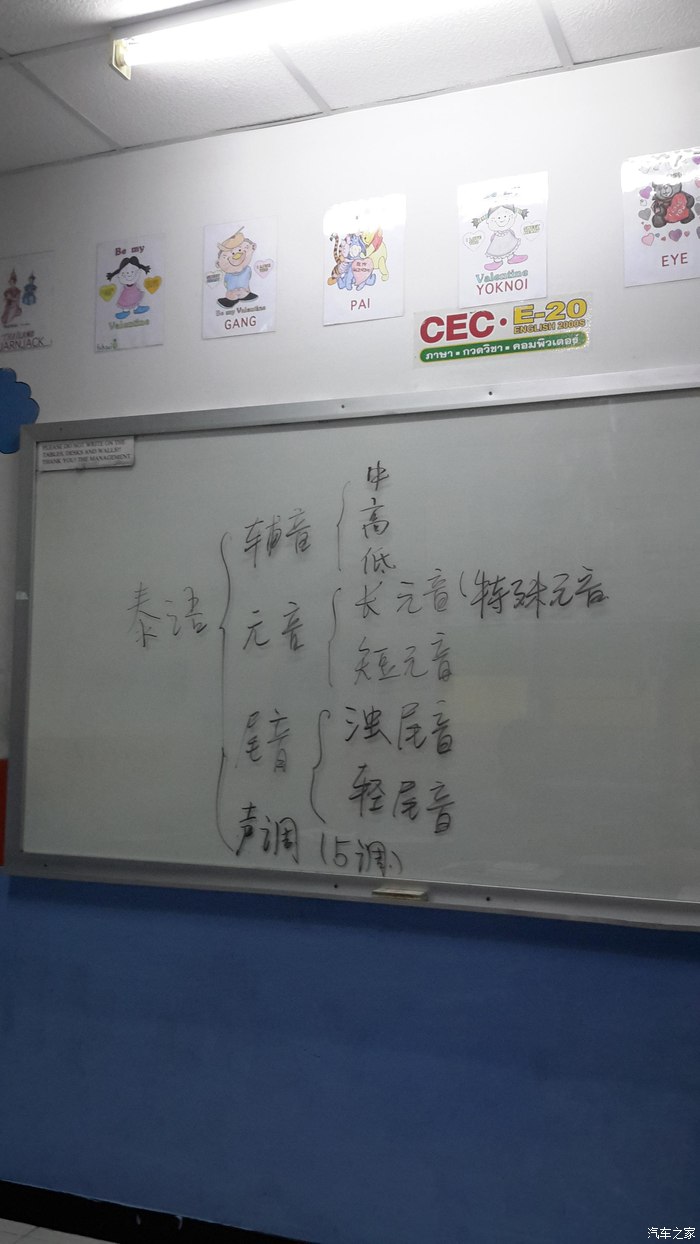 Be my
Valentine
Be my Valentine
GANG
PAI
Valentine
YOKNOI
EYE
CEC · E-20
ENGLISH 2000S
ภาษา · กวดวิชา · คอมพิวเตอร์
PLEASE DO NOT WRITE ON THE
TABLES, DESKS AND WALLS!!
THANK YOU! THE MANAGEMENT
泰语
辅音
中
高
低
元音
长元音(特殊元音
短元音
尾音
浊尾音
轻尾音
声调 (5调)
汽车之家